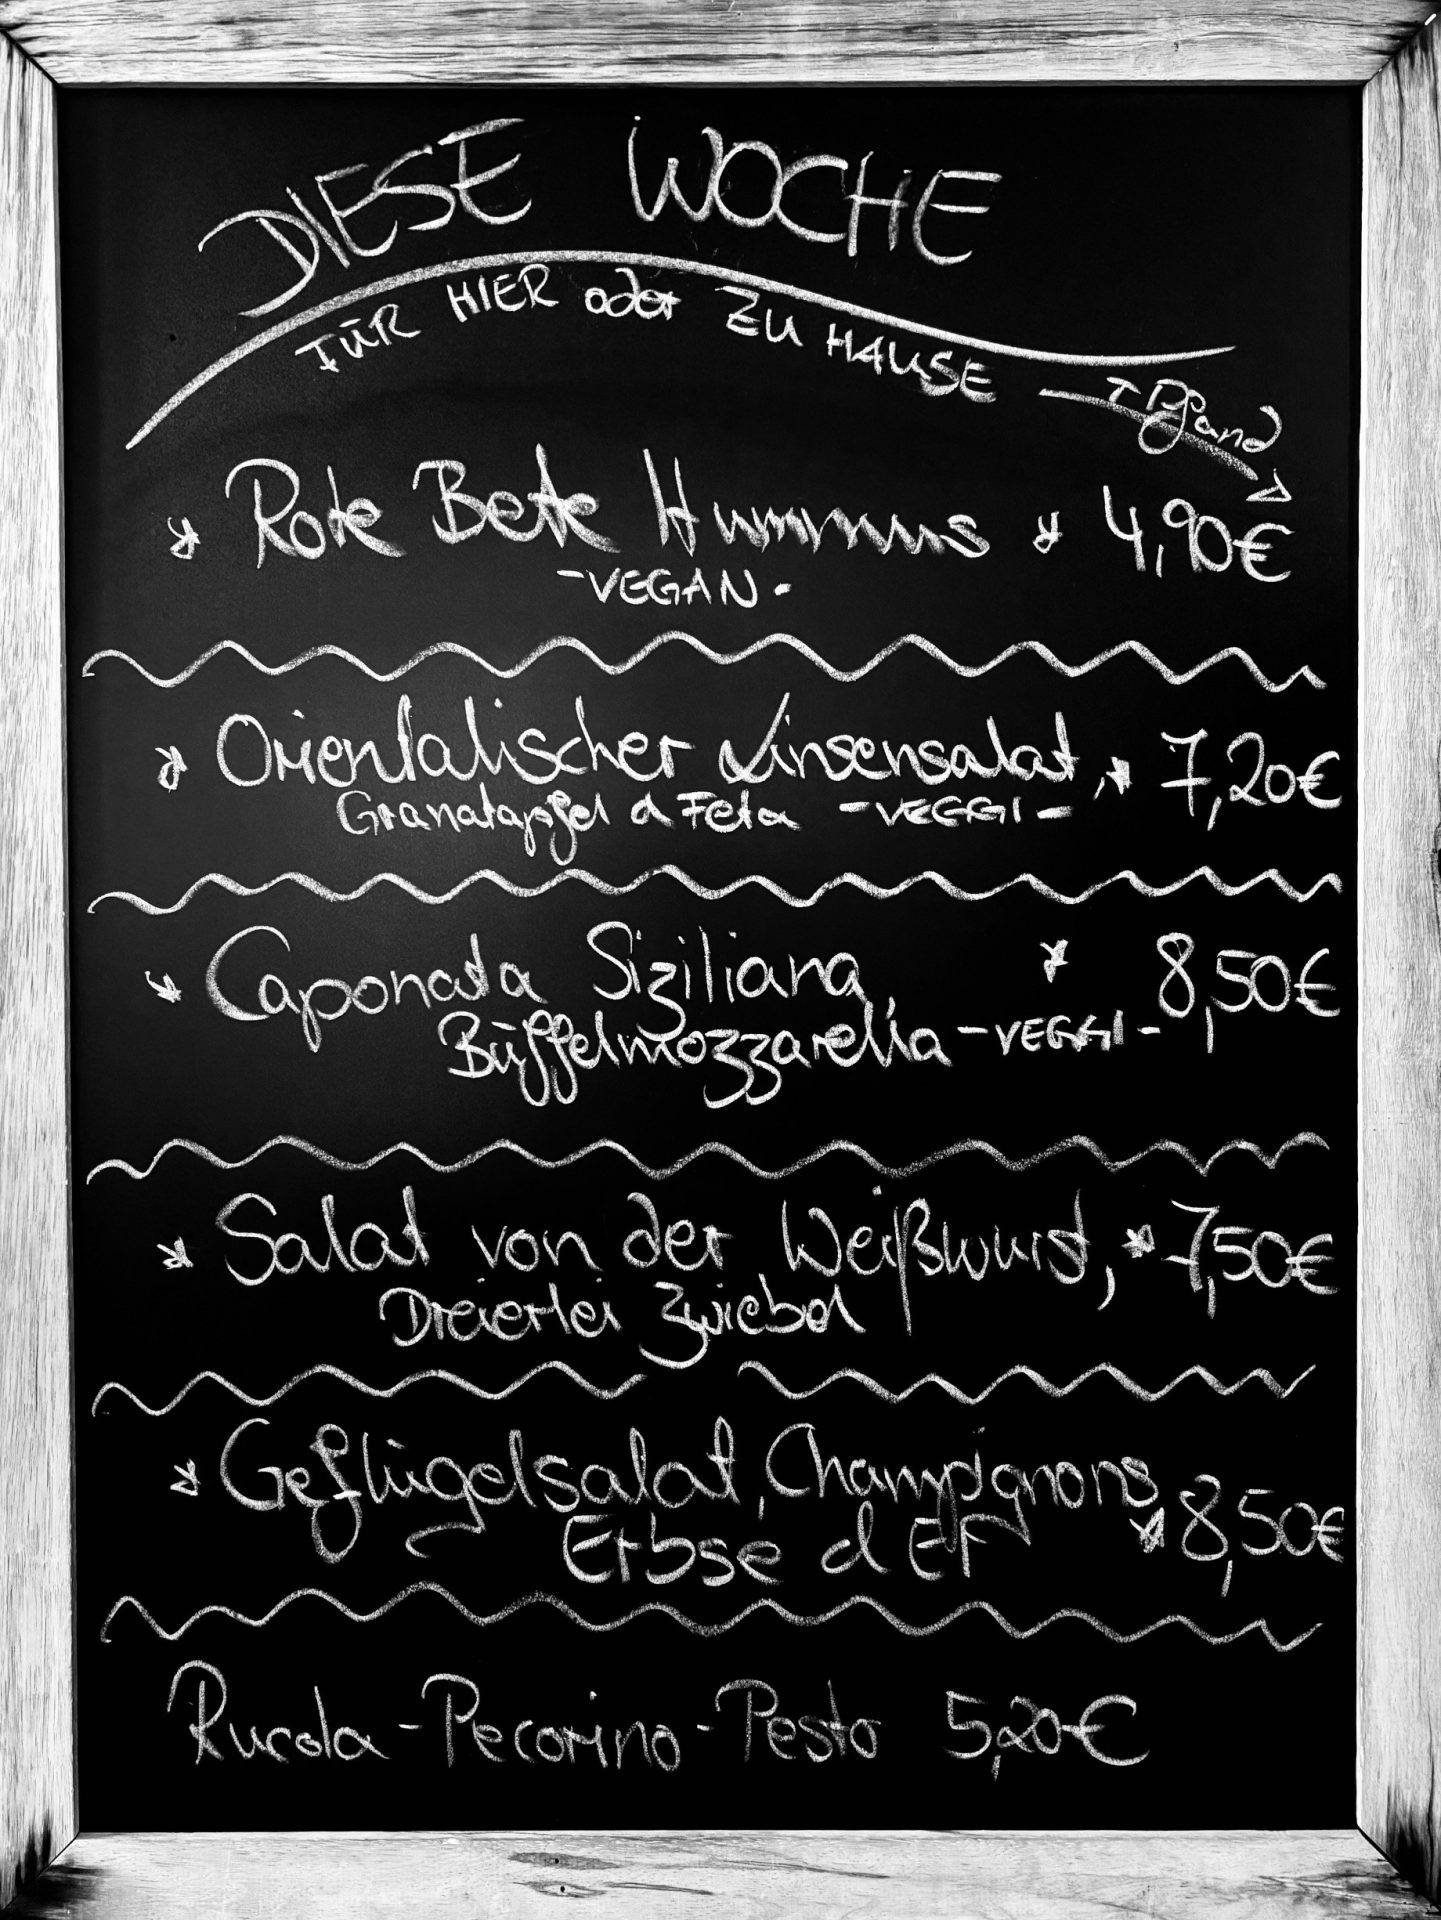 DIESE WOCHE
FÜR HIER oder ZU HAUSE
+ Pfand
Rote Bete Hummus 4,90€
-VEGAN-
Orientalischer Linsensalat, 7,20€
Granatapfel & Feta -VEGGI-
Caponata Siziliana, 8,50€
Büffelmozzarella -VEGGI-
Salat von der Weißwurst, 7,50€
Dreierlei Zwiebel
Geflügelsalat, Champignons
Erbse & Ei 8,50€
Rucola-Pecorino-Pesto 5,20€